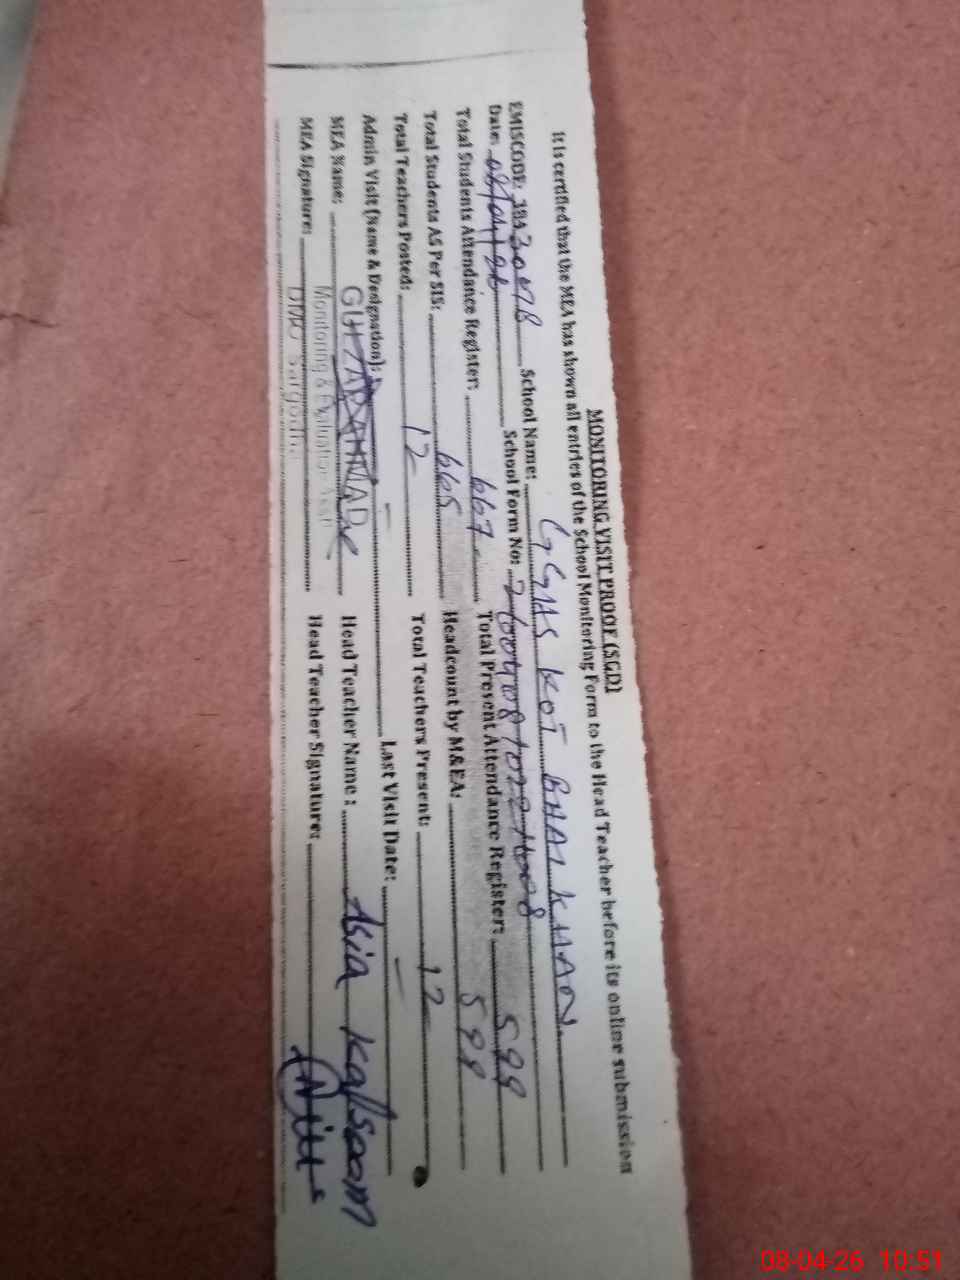 MONITORING VISIT PROOF (SGD)
It is certified that the MEA has shown all entries of the School Monitoring Form to the Head Teacher before its online submission
EMISCODE: School Name: GGHS KOT BHAI KHAN
Date: 08/04/26 School Form No:
Total Students Attendance Register: 667 Total Present Attendance Register: 599
Total Students AS Per SIS: 665 Headcount by M&EA: 599
Total Teachers Posted: 12 Total Teachers Present: 12
Admin Visit (Name & Designation): - Last Visit Date: -
MEA Name: Head Teacher Name: Asia Kalsoom
Monitoring & Evaluation Asst
MEA Signature: DMO Sargodha Head Teacher Signature:
08-04-26 10:51